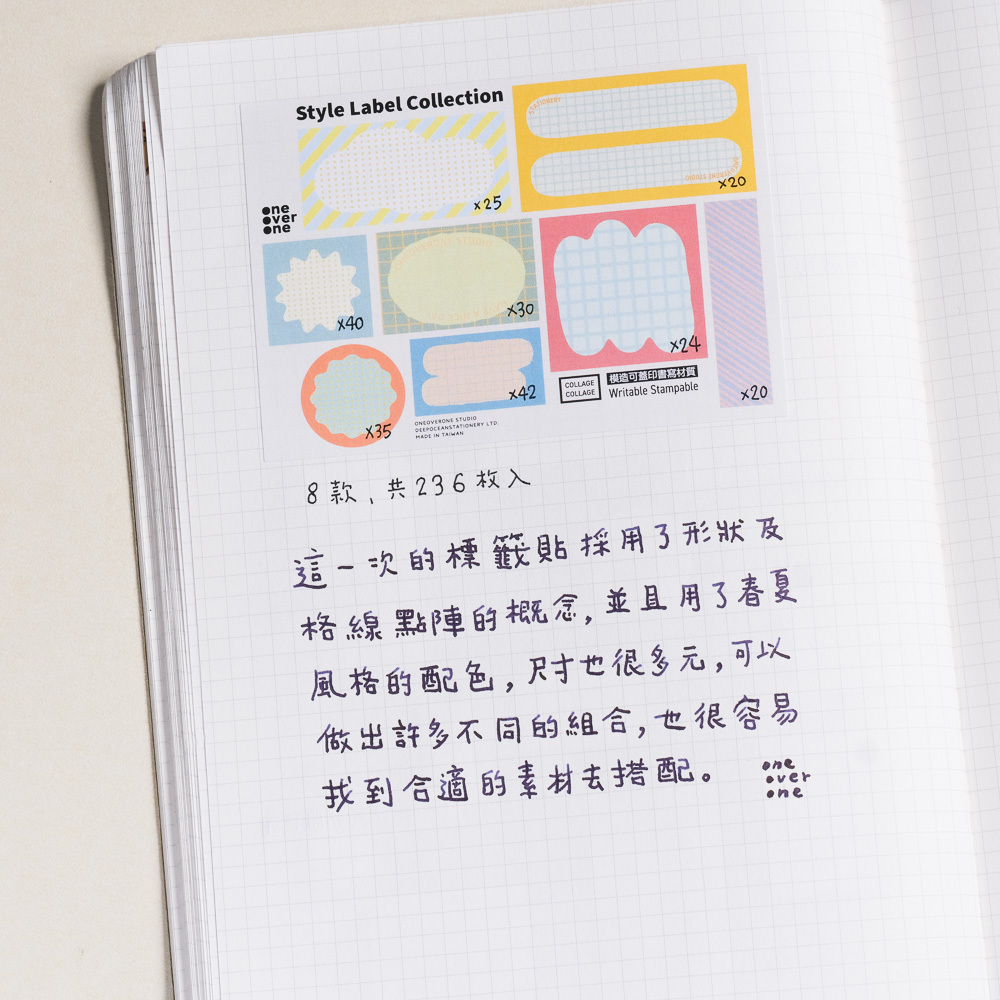 Style Label Collection
STATIONERY
ONEOVERONE STUDIO
x20
x25
one
over
one
ONEOVERONE STUDIO
x40
x30
x24
x20
x35
x42
COLLAGE
COLLAGE
模造可蓋印書寫材質
Writable Stampable
ONEOVERONE STUDIO
DEEPOCEANSTATIONERY LTD.
MADE IN TAIWAN
8款、共236枚入
這一次的標籤貼採用了形狀及
格線點陣的概念,並且用了春夏
風格的配色,尺寸也很多元,可以
做出許多不同的組合,也很容易
找到合適的素材去搭配。
one
over
one